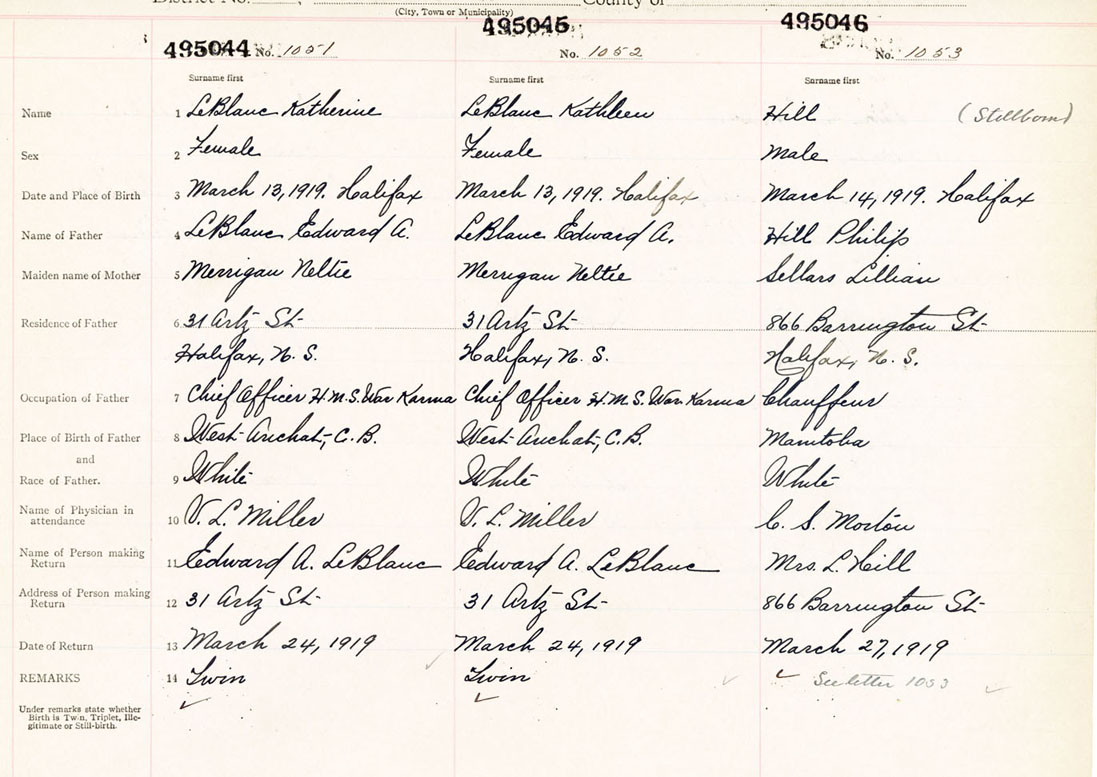 District No. , County of
(City, Town or Municipality)
495044 No. 1051 495045 No. 1052 495046 No. 1053
Surname first Surname first Surname first
Name 1 LeBlanc Katherine LeBlanc Kathleen Hill (Stillborn)
Sex 2 Female Female Male
Date and Place of Birth 3 March 13, 1919. Halifax March 13, 1919. Halifax March 14, 1919. Halifax
Name of Father 4 LeBlanc Edward A. LeBlanc Edward A. Hill Philip
Maiden name of Mother 5 Merrigan Nettie Merrigan Nettie Sellars Lillian
Residence of Father 6 31 Artz St- 31 Artz St- 866 Barrington St-
Halifax, N. S. Halifax, N. S. Halifax, N. S.
Occupation of Father 7 Chief Officer H.M.S. War Karma Chief Officer H.M.S. War Karma Chauffeur
Place of Birth of Father 8 West Arichat, C. B. West Arichat, C. B. Manitoba
and
Race of Father. 9 White White White
Name of Physician in attendance 10 V. L. Miller V. L. Miller C. S. Morton
Name of Person making Return 11 Edward A. LeBlanc Edward A. LeBlanc Mrs. L. Hill
Address of Person making Return 12 31 Artz St- 31 Artz St- 866 Barrington St-
Date of Return 13 March 24, 1919 March 24, 1919 March 27, 1919
REMARKS 14 Twin Twin See letter 1053
Under remarks state whether
Birth is Twin, Triplet, Ille-
gitimate or Still-birth.